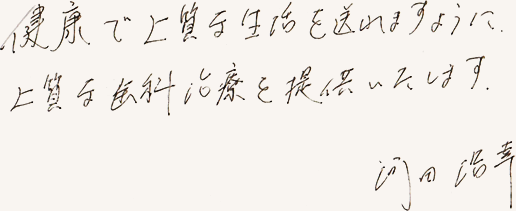 健康で上質な生活を送れますように.
上質な歯科治療を提供いたします.
河田浩幸